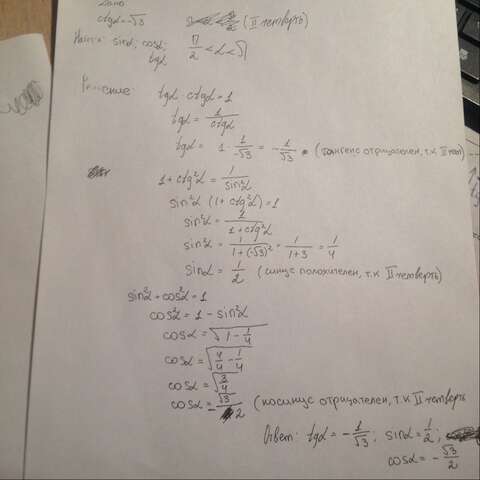 Дано
ctgα = -√3 (II четверть)
Найти: sinα; cosα; π/2 < α < π
tgα
Решение: tgα · ctgα = 1
tgα = 1/ctgα
tgα = 1 · 1/-√3 = -1/√3 (тангенс отрицателен, т.к II чет)
1 + ctg²α = 1/sin²α
sin²α (1 + ctg²α) = 1
sin²α = 1/1+ctg²α
sin²α = 1/1+(-√3)² = 1/1+3 = 1/4
sinα = 1/2 (синус положителен, т.к II четверть)
sin²α + cos²α = 1
cos²α = 1 - sin²α
cosα = √1 - 1/4
cosα = √4/4 - 1/4
cosα = √3/4
cosα = -√3/2 (косинус отрицателен, т.к II четверть
Ответ: tgα = -1/√3; sinα = 1/2;
cosα = -√3/2